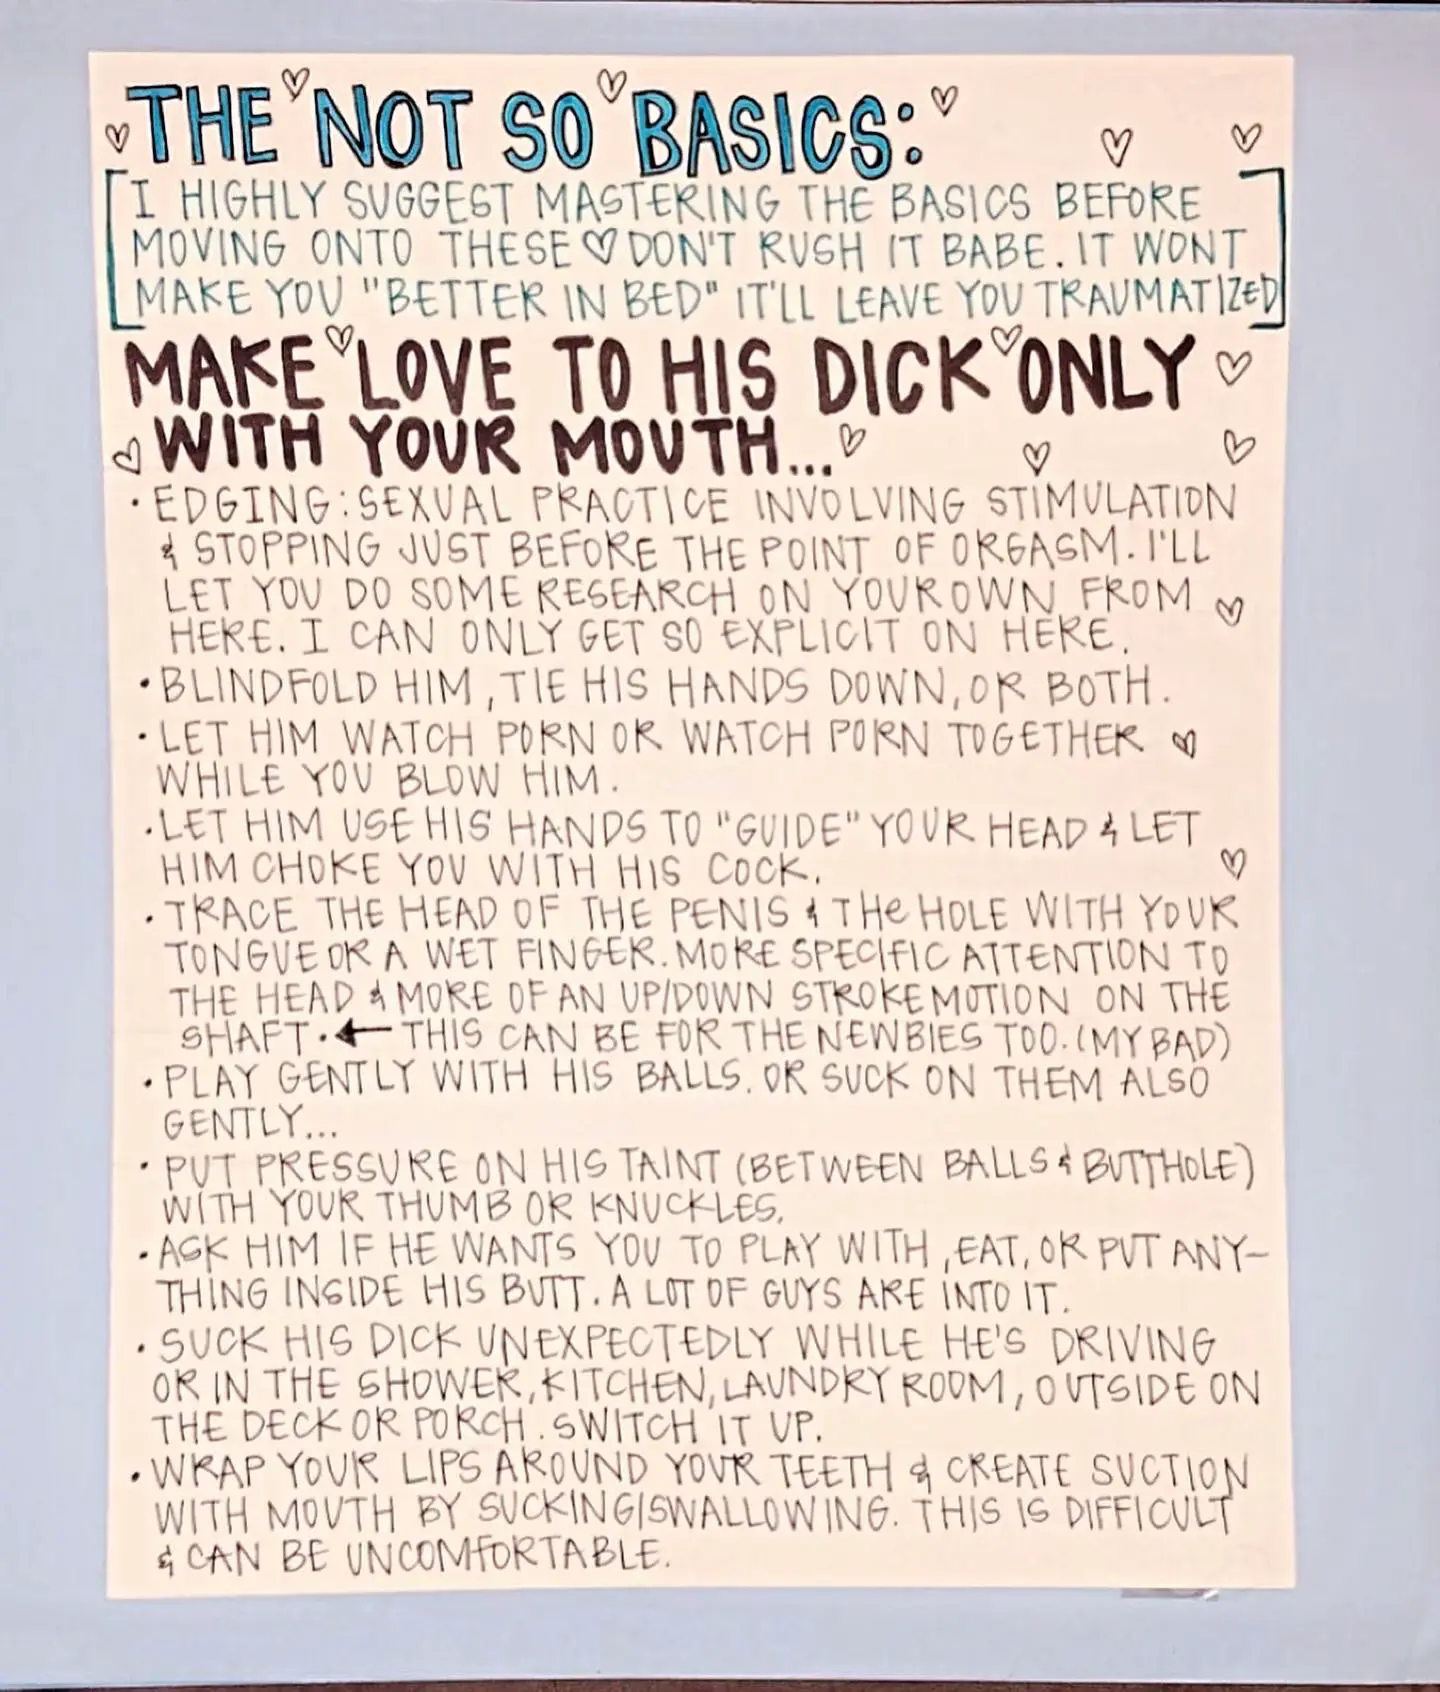 THE NOT SO BASICS:
[I HIGHLY SUGGEST MASTERING THE BASICS BEFORE
MOVING ONTO THESE ♡ DON'T RUSH IT BABE. IT WONT
MAKE YOU "BETTER IN BED" IT'LL LEAVE YOU TRAUMATIZED]
MAKE LOVE TO HIS DICK ONLY
WITH YOUR MOUTH...
• EDGING: SEXUAL PRACTICE INVOLVING STIMULATION
& STOPPING JUST BEFORE THE POINT OF ORGASM. I'LL
LET YOU DO SOME RESEARCH ON YOUR OWN FROM
HERE. I CAN ONLY GET SO EXPLICIT ON HERE.
• BLINDFOLD HIM, TIE HIS HANDS DOWN, OR BOTH.
• LET HIM WATCH PORN OR WATCH PORN TOGETHER
WHILE YOU BLOW HIM.
• LET HIM USE HIS HANDS TO "GUIDE" YOUR HEAD & LET
HIM CHOKE YOU WITH HIS COCK.
• TRACE THE HEAD OF THE PENIS & THE HOLE WITH YOUR
TONGUE OR A WET FINGER. MORE SPECIFIC ATTENTION TO
THE HEAD & MORE OF AN UP/DOWN STROKE MOTION ON THE
SHAFT. ← THIS CAN BE FOR THE NEWBIES TOO. (MY BAD)
• PLAY GENTLY WITH HIS BALLS. OR SUCK ON THEM ALSO
GENTLY...
• PUT PRESSURE ON HIS TAINT (BETWEEN BALLS & BUTTHOLE)
WITH YOUR THUMB OR KNUCKLES.
• ASK HIM IF HE WANTS YOU TO PLAY WITH, EAT, OR PUT ANY-
THING INSIDE HIS BUTT. A LOT OF GUYS ARE INTO IT.
• SUCK HIS DICK UNEXPECTEDLY WHILE HE'S DRIVING
OR IN THE SHOWER, KITCHEN, LAUNDRY ROOM, OUTSIDE ON
THE DECK OR PORCH. SWITCH IT UP.
• WRAP YOUR LIPS AROUND YOUR TEETH & CREATE SUCTION
WITH MOUTH BY SUCKING/SWALLOWING. THIS IS DIFFICULT
& CAN BE UNCOMFORTABLE.